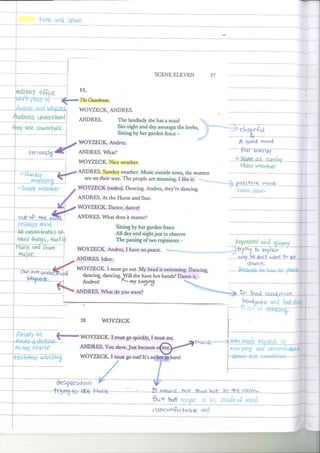 time and space
SCENE ELEVEN 37
11.
The Guardroom.
WOYZECK, ANDRES.
ANDRES. The landlady she has a maid
Sits night and day amongst the herbs,
Sitting by her garden fence –
WOYZECK. Andres;
ANDRES. What?
WOYZECK. Nice weather.
ANDRES. Sunday weather. Music outside town, the women
are on their way. The people are steaming, I like it.
WOYZECK (restless) Dancing. Andres, they're dancing.
ANDRES. At the Horse and Star.
WOYZECK. Dance, dance!
ANDRES. What does it matter?
Sitting by her garden fence
All day and night just to observe
The passing of two regiments –
WOYZECK. Andres, I have no peace.
ANDRES. Idiot.
WOYZECK. I must go out. My head is swimming. Dancing,
dancing, dancing. Will she have hot hands? Damn it,
Andres!
ANDRES. What do you want?
38 WOYZECK
WOYZECK. I must go quickly, I must see.
ANDRES. You slave. Just because of her.
WOYZECK. I must go out! It's so hot in here!
military office
work place of
Andres and Woyzeck
Audience understand
they are coworkers
seriously
- Sunday
morning
- Sunny weather
out of the mind
restless mind
he concentrates on
other things, that is
Marie and Drum
major
Did not understand
Woyzeck
Finally he
made a decision
to see Marie
+ extreme worrying
cheerful
A good mind
positive mind
calm down
Depressed and gloomy
trying to explain
why he don't want to go
dance.
Because he has no peace
In bad condition
dancing.
Marie
desperation
trying to see Marie
It means not that hot in the room
But hot